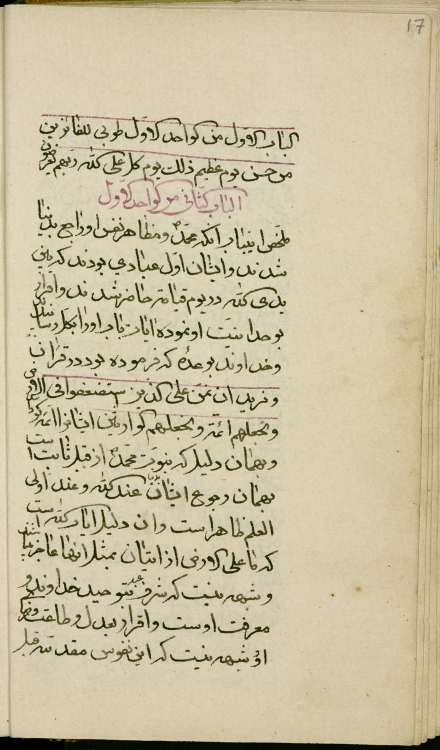 17
الباب الاول من الواحد الاول طوبی للفائزین
من حسن یوم عظیم ذلك یوم كل على الله ربهم یعرضون
الباب الثانی من الواحد الاول
ملخص این باب آنکه محمد و مظاهر نفس او راجع بدنیا
شدند و ایشان اول عبادی بودند که بین
یدی الله در یوم قیامة حاضر شدند و اقرار
بوحدانیت او نموده ایات باب او را بکل رسانیدند
و خداوند بوعده که فرموده بود در قران
و نرید ان نمن علی الذین استضعفوا فی الارض
و نجعلهم ائمة و نجعلهم الوارثین ایشانرا ائمه
و بهمان دلیل که نبوت محمد از قبل ثابت است
بهمان رجوع ایشان عند الله و عند اولی
العلم ظاهر است و ان دلیل ایات الله است
که ما علی الارض از اتیان بمثل انها عاجزند
و شبهه نیست که شرف عبد بتوحید خداوند و
معرفت اوست و اقرار بعدل و طاعت و رضای
او و شبهه نیست که این نفوس مقدسه قبل